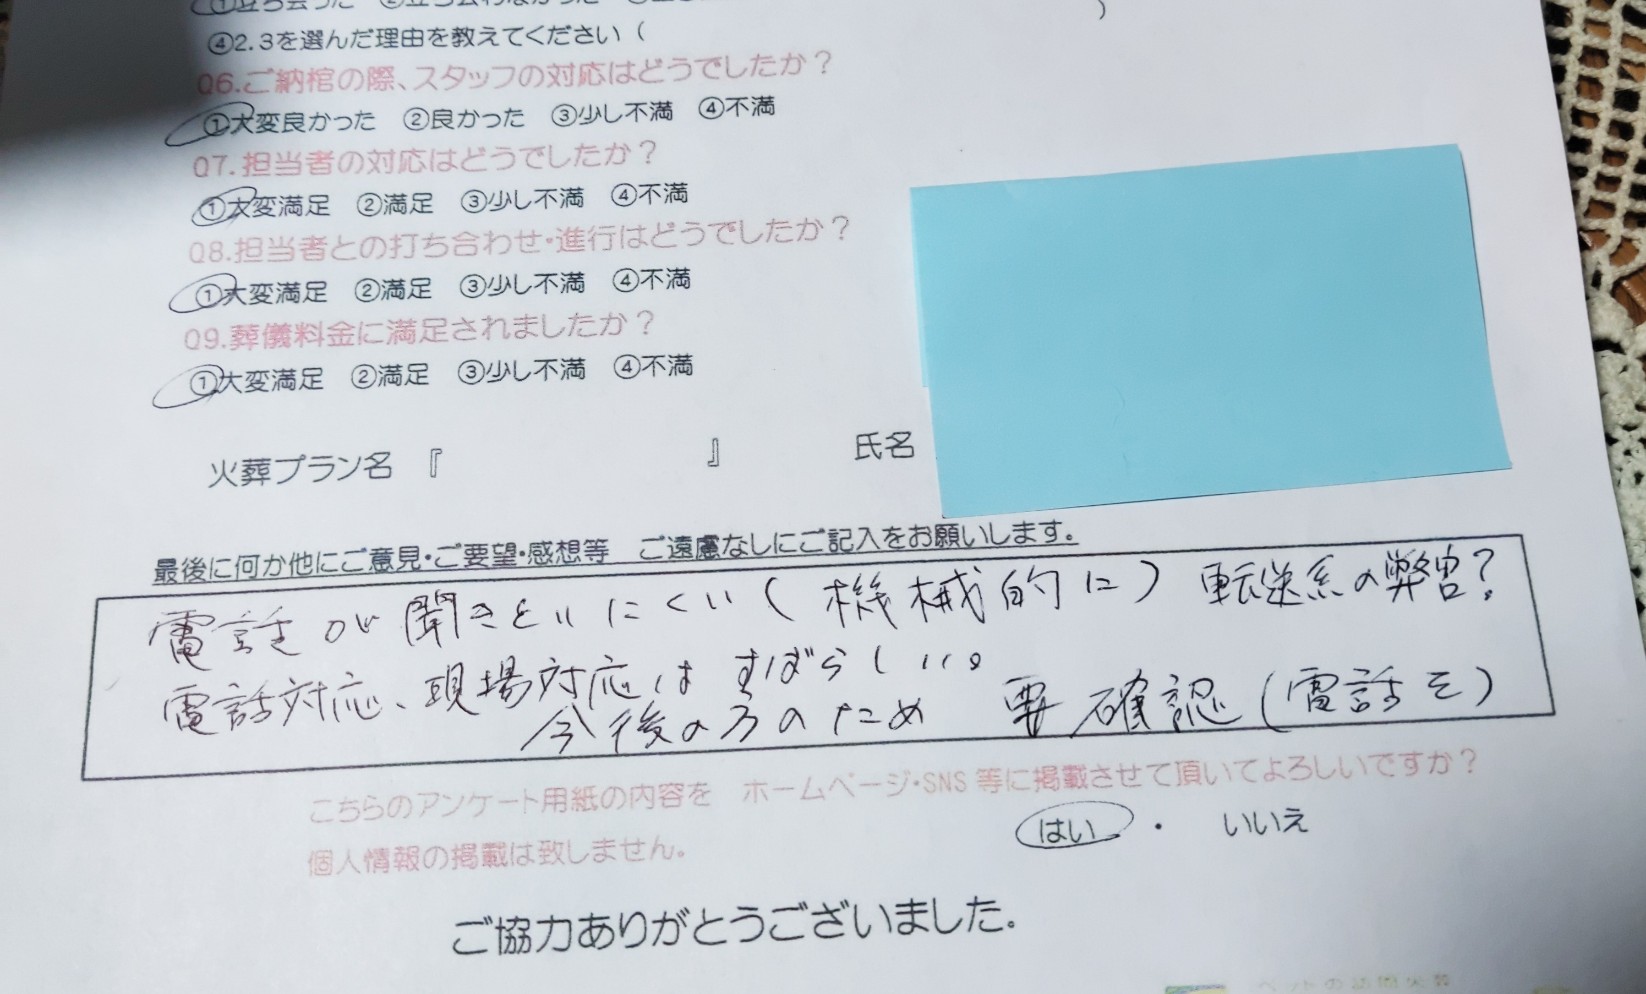 ④2.3を選んだ理由を教えてください（ ）
Q6.ご納棺の際、スタッフの対応はどうでしたか？
①大変良かった ②良かった ③少し不満 ④不満
Q7.担当者の対応はどうでしたか？
①大変満足 ②満足 ③少し不満 ④不満
Q8.担当者との打ち合わせ・進行はどうでしたか？
①大変満足 ②満足 ③少し不満 ④不満
Q9.葬儀料金に満足されましたか？
①大変満足 ②満足 ③少し不満 ④不満
火葬プラン名 『 』 氏名
最後に何か他にご意見・ご要望・感想等 ご遠慮なしにご記入をお願いします。
電話が聞きとりにくい（機械的に）転送系の弊害？
電話対応、現場対応はすばらしい。
今後の方のため 要確認（電話を）
こちらのアンケート用紙の内容を ホームページ・SNS等に掲載させて頂いてよろしいですか？
はい ・ いいえ
個人情報の掲載は致しません。
ご協力ありがとうございました。